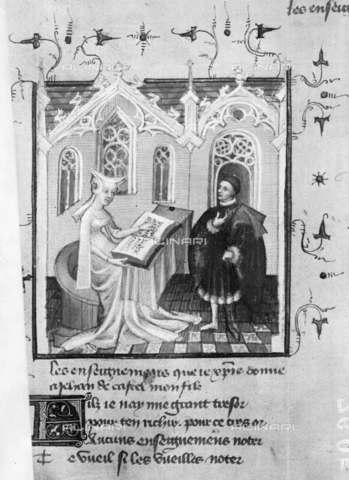 les enseig
ALINARI
les enseignemens que ie xpine donne
a Jehan de castel mon filz
Filz ie nay mie grant tresor
pour ten richir pour ce tres or
Aucuns enseignemens noter
te vueil si les vueilles noter